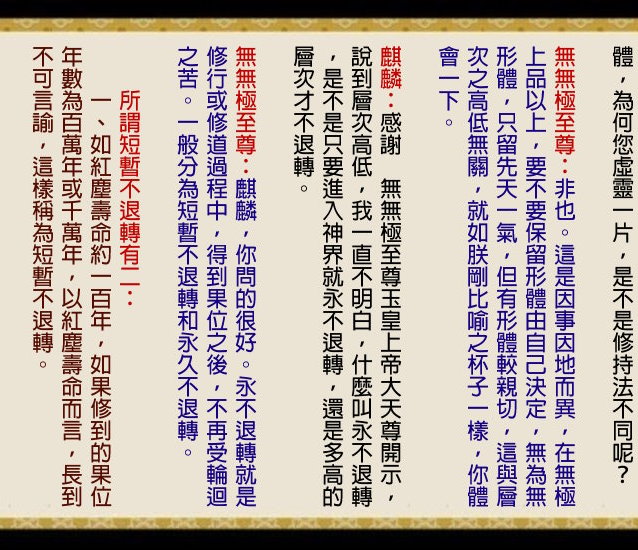 體，為何您虛靈一片，是不是修持法不同呢？
無無極至尊：非也。這是因事因地而異，在無極
上品以上，要不要保留形體由自己決定，無為無
形體，只留先天一氣，但有形體較親切，這與層
次之高低無關，就如朕剛比喻之杯子一樣，你體
會一下。
麒麟：感謝　無無極至尊玉皇上帝大天尊開示，
說到層次高低，我一直不明白，什麼叫永不退轉
，是不是只要進入神界就永不退轉，還是多高的
層次才不退轉。
無無極至尊：麒麟，你問的很好。永不退轉就是
修行或修道過程中，得到果位之後，不再受輪迴
之苦。一般分為短暫不退轉和永久不退轉。
所謂短暫不退轉有二：
一、如紅塵壽命約一百年，如果修到的果位
年數為百萬年或千萬年，以紅塵壽命而言，長到
不可言諭，這樣稱為短暫不退轉。